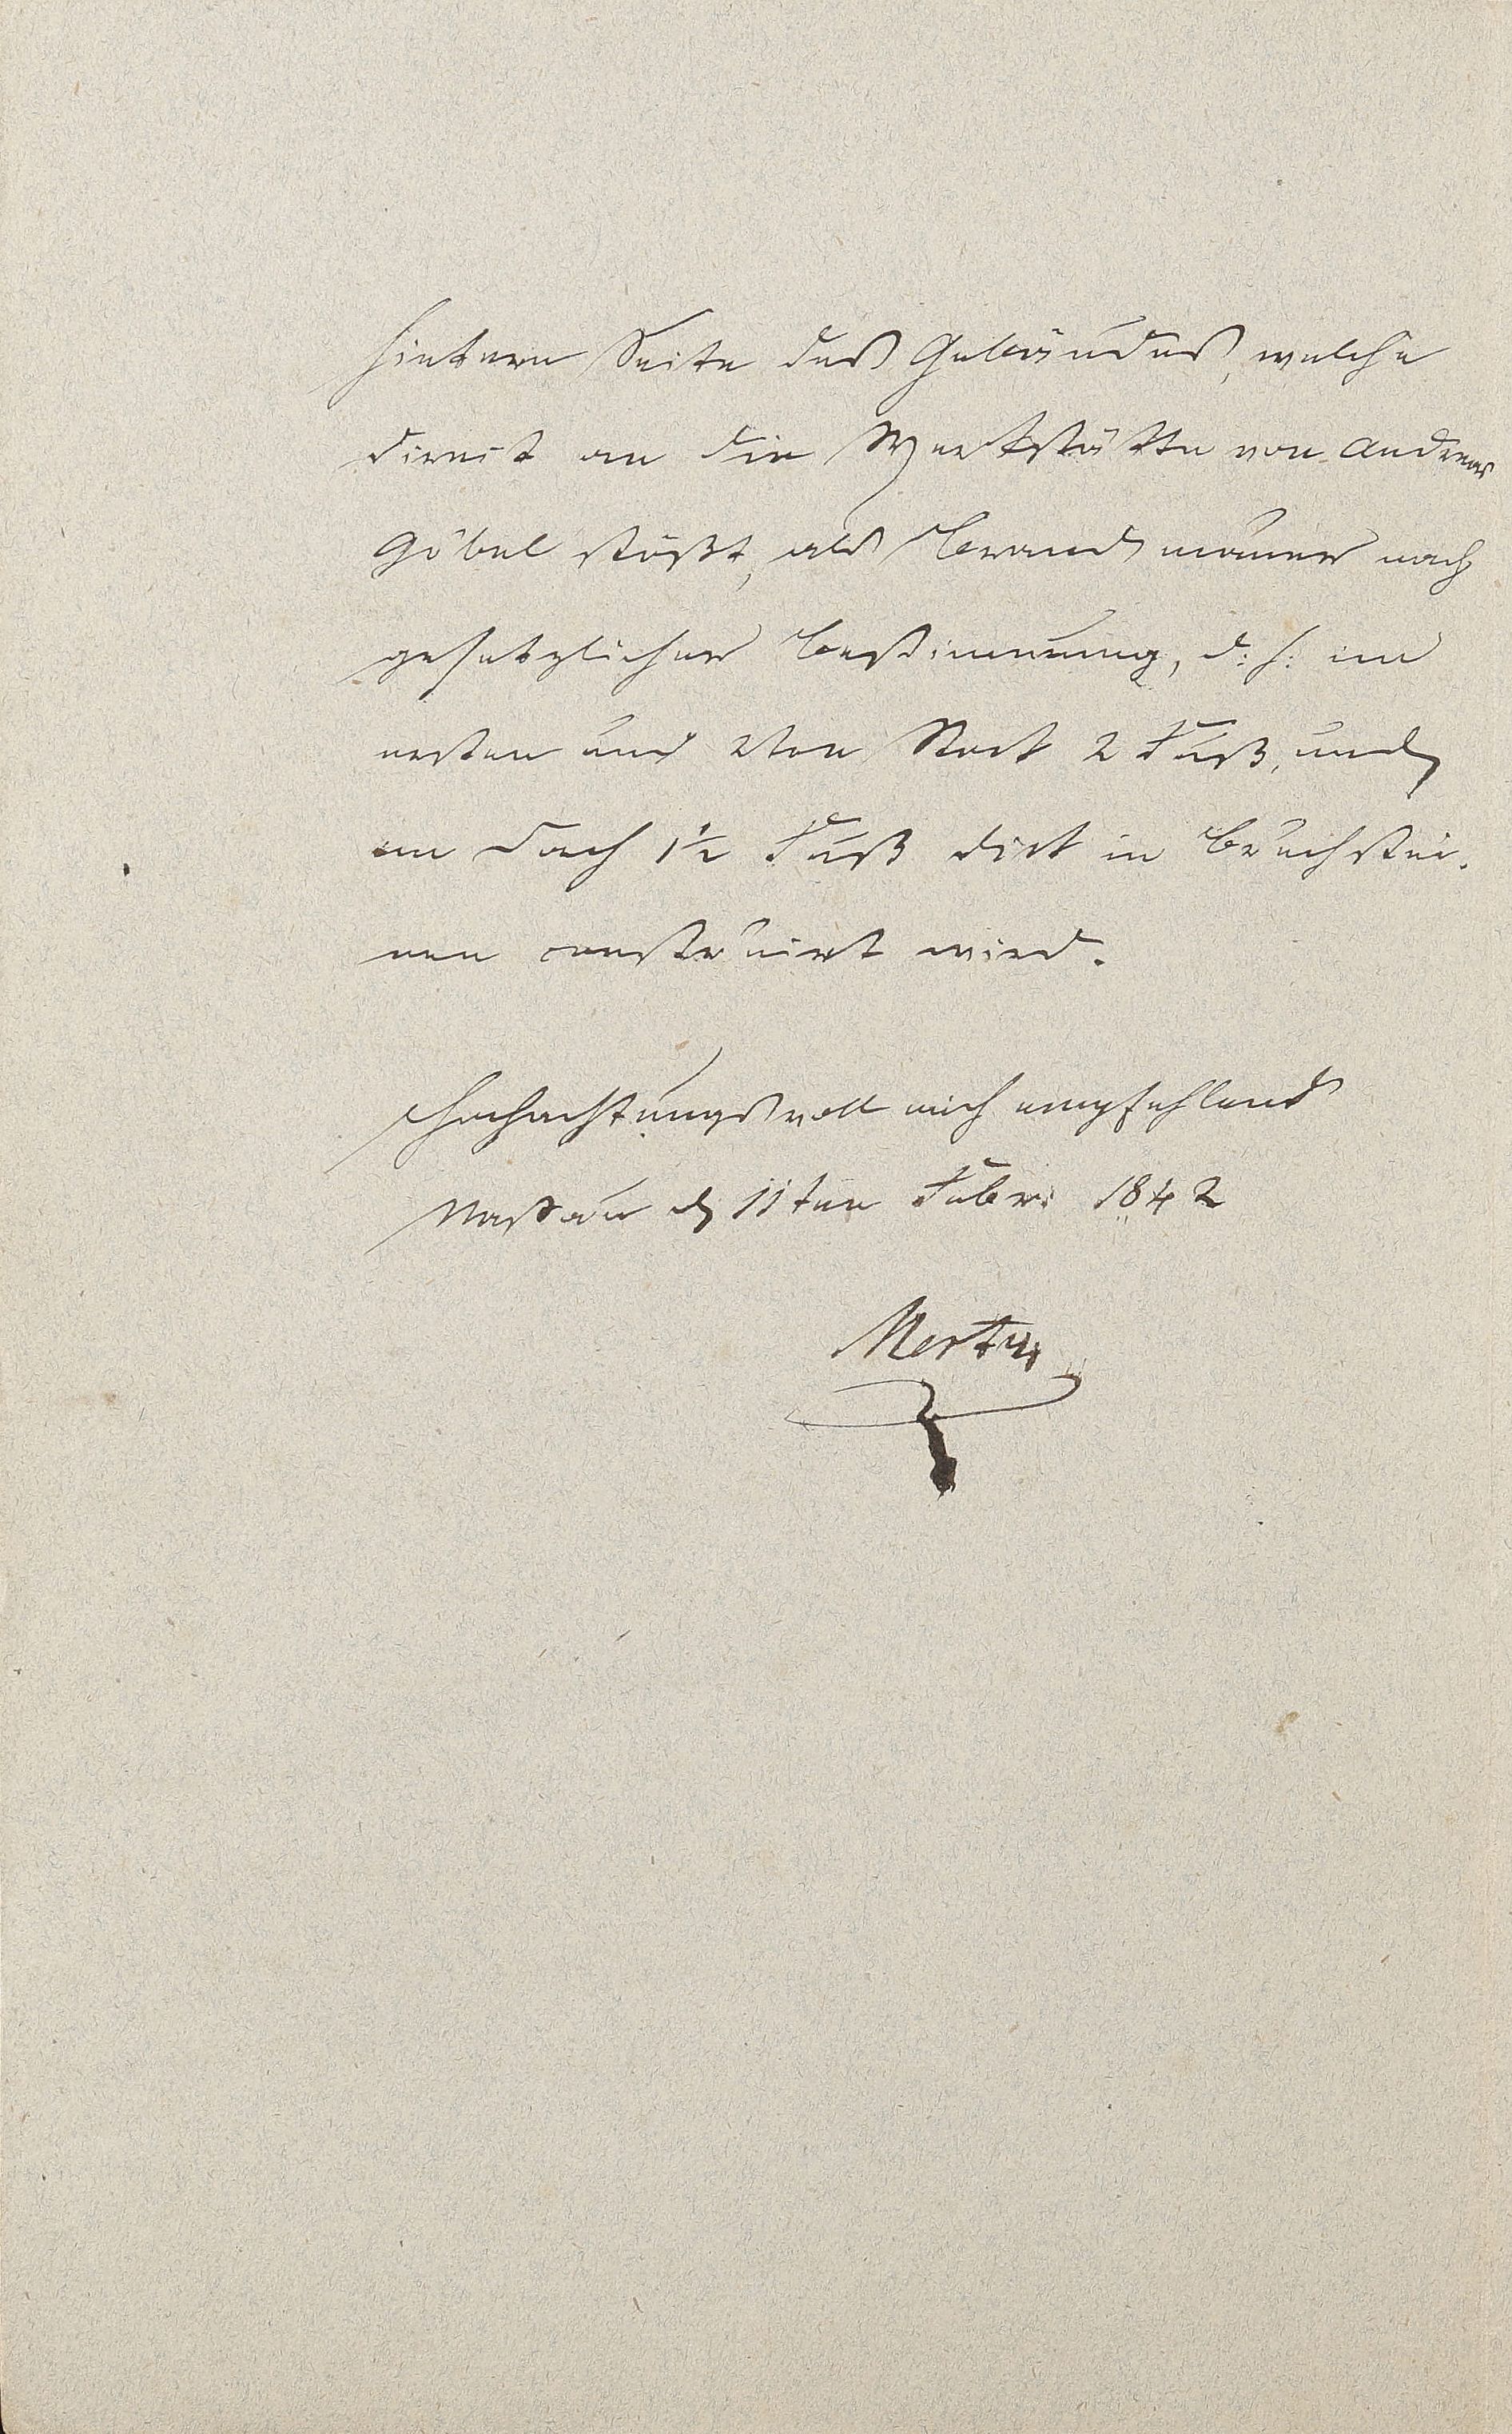 hintere Seite des Gebäudes, welche
direct an die Werkstätte von Andreas
Göbel stößt, als Brandmauer nach
gesetzlicher Bestimmung, d: h: im
ersten und 2ten Stock 2 Fuß, und
im Dach 1½ Fuß dick in Bruchstei-
nen construirt wird.
Hochachtungsvoll mich empfehlend
Nassau d 11ten Febr: 1842